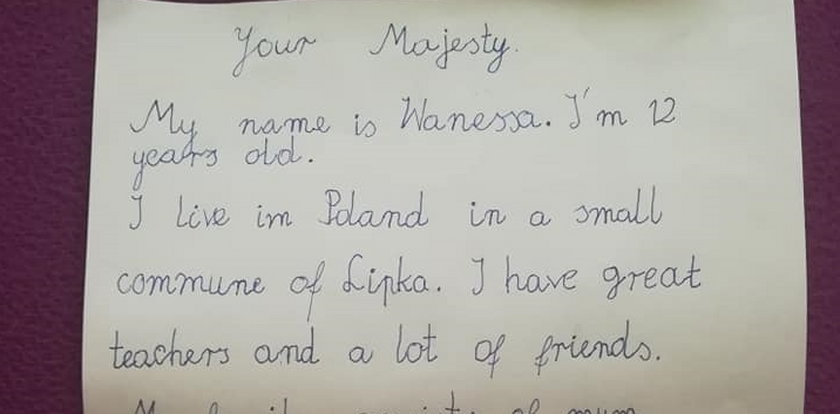 Your Majesty.
My name is Wanessa. I'm 12
years old.
I live im Poland in a small
commune of Lipka. I have great
teachers and a lot of friends.